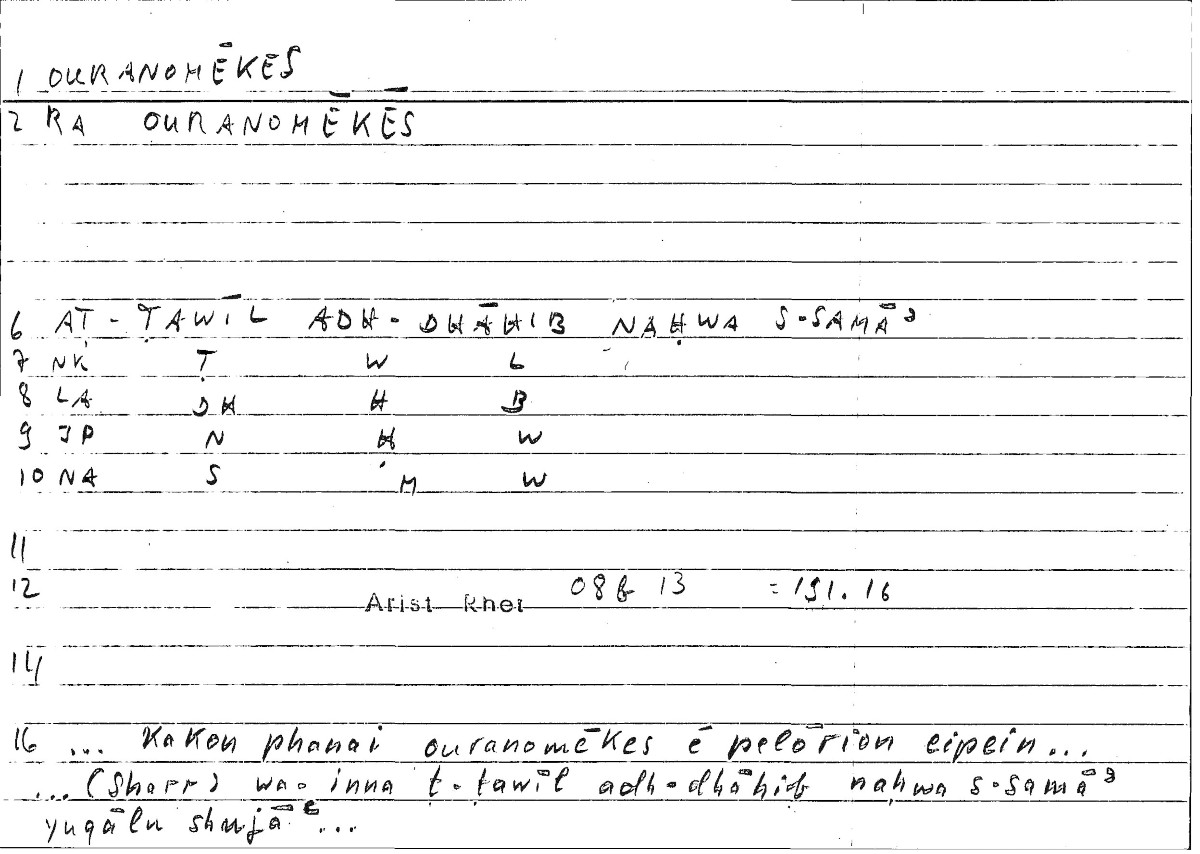 1 OURANOMĒKES
2 RA OURANOMĒKĒS
6 AṬ-ṬAWĪL ADH-DHĀHIB NAḤWA S-SAMĀʾ
7 NK Ṭ W L
8 LA DH H B
9 JP N Ḥ W
10 NA S M W
11
12 Arist Rhet 08b 13 = 191.16
14
16 ... Kakon phanai ouranomēkes ē pelōrion eipein...
... (Sharr) wa-inna ṭ-ṭawīl adh-dhāhib naḥwa s-samāʾ
yuqālu shujāʿ...